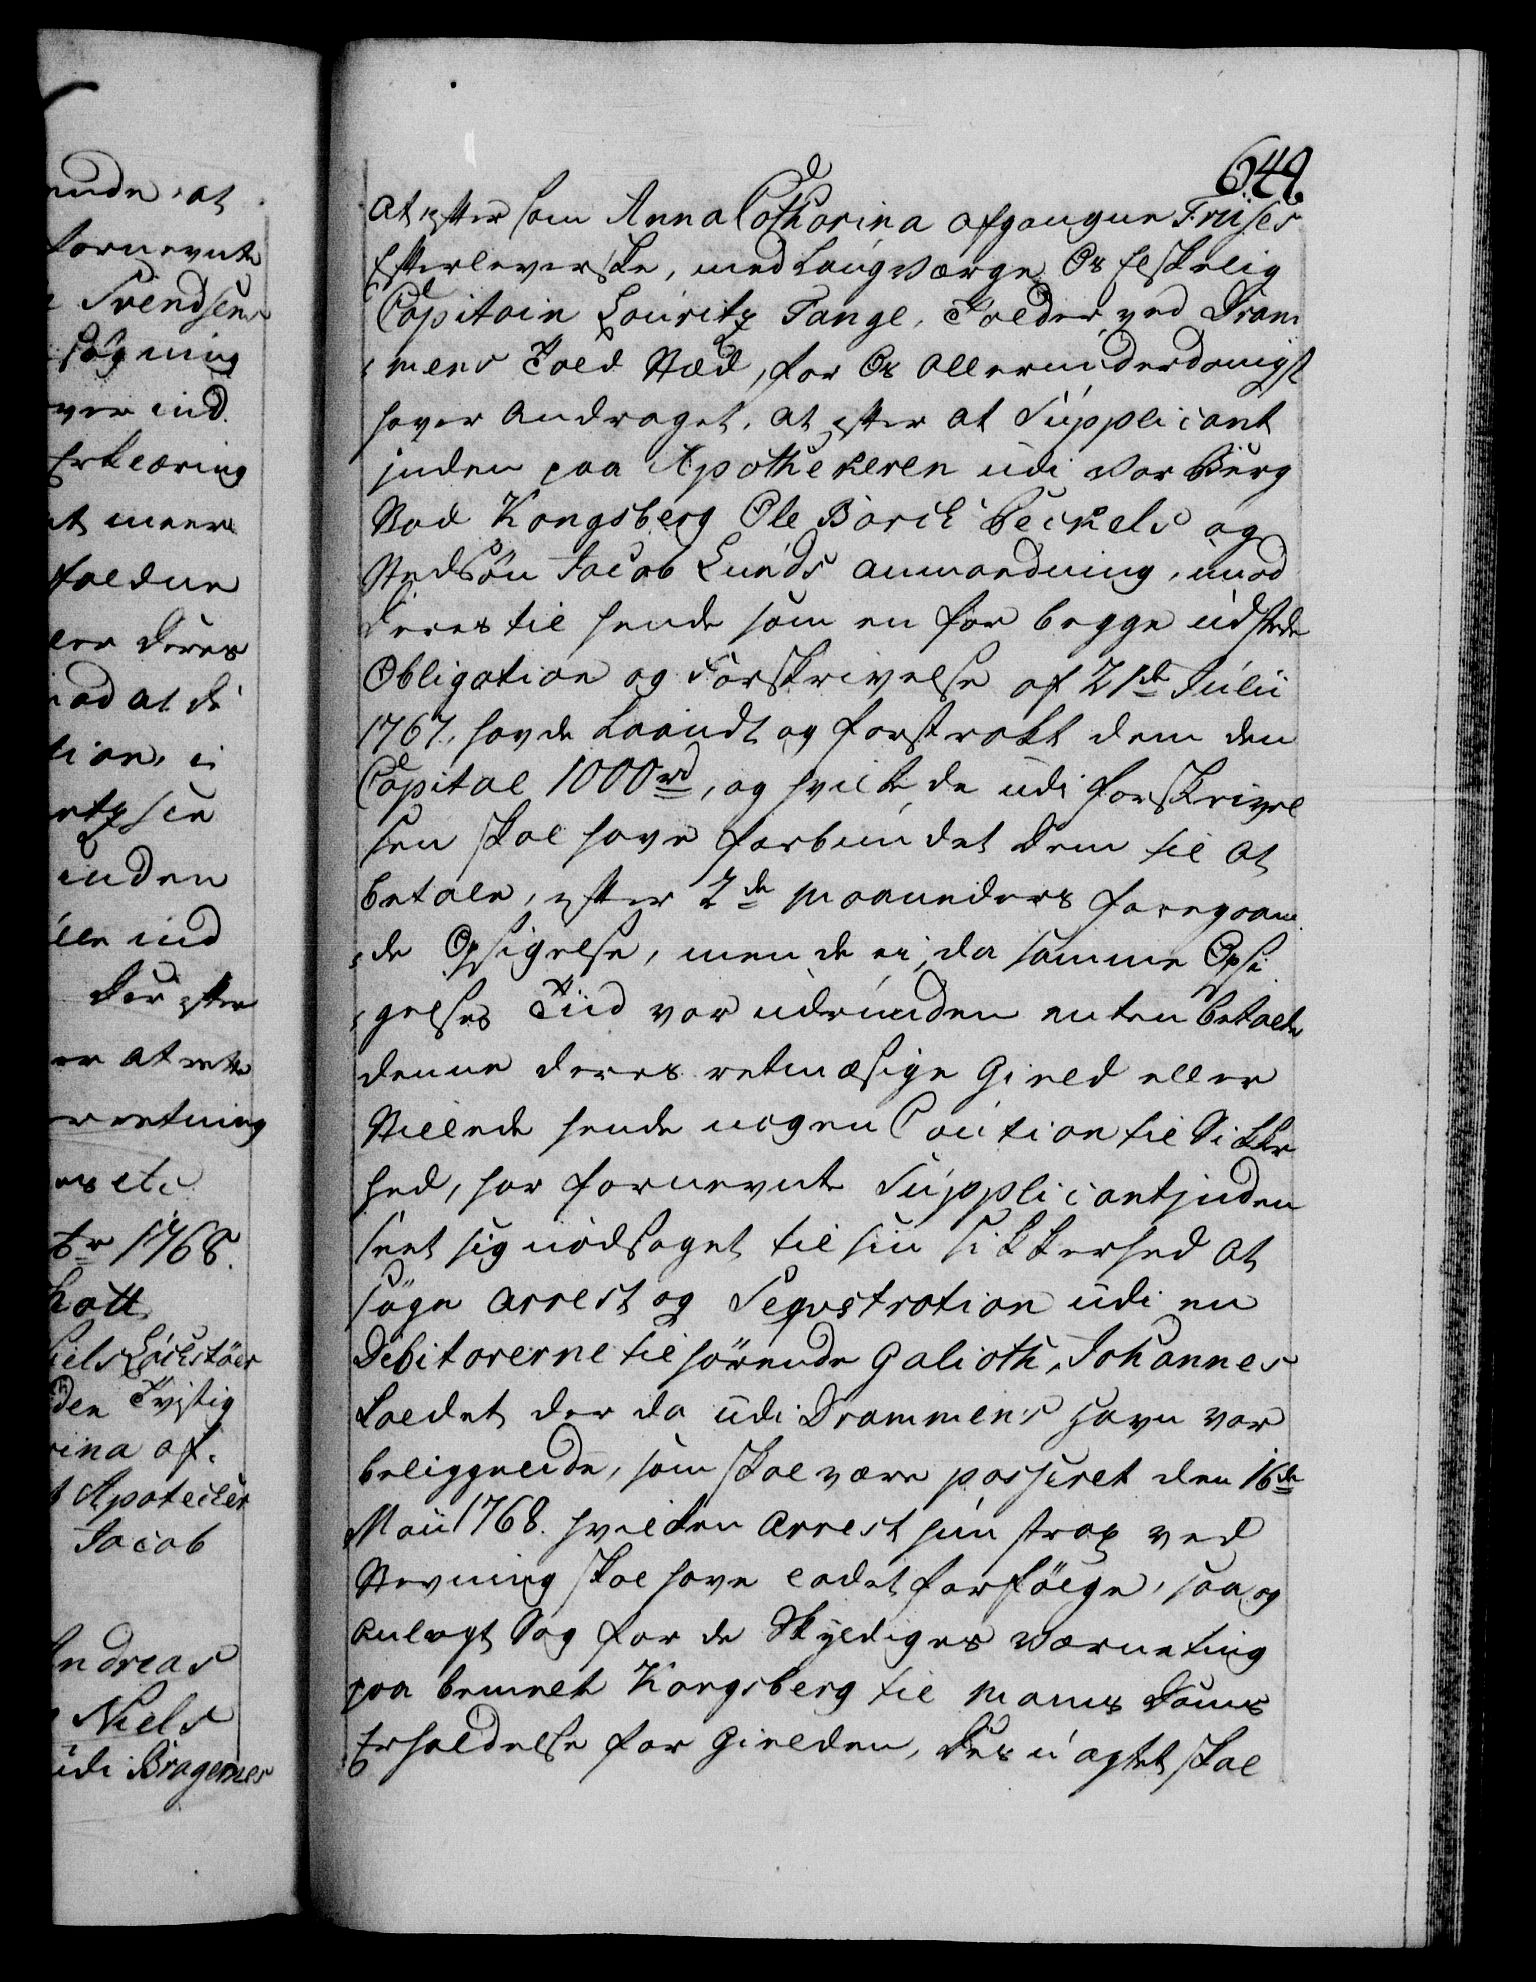 644.
At efter som Anna Catharina afgangne Friises
Efterleverske, med Laugværge Os Elskelig
Capitain Lauritz Tange, Tolder ved Dram¬
mens Told Stæd, for Os allerunderdanigst
haver andraget, at efter at Supplicant
inden paa Apothekeren udi Vor Berg
Stad Kongsberg Ole Borch Beichels og
Stedsøn Jacob Lunds anmordning, imod
deres til hende som en for begge udstede
Obligation og Forskrivelse af 21de Julii
1767, havde Laandt og forstrakt dem den
Capital 1000 rd, og hvilke de udi forskrivel
sen skal have forbundet dem til at
betale, efter 2de Maaneders foregaaen
de Opsigelse, men de ei, da samme Opsi
gelses Tiid var udrunden enten betalte
denne deres retmæsige Gield eller
stillede hende nogen Caution til Sikker
hed, har fornevnte Supplicantinden
seet sig nødsaget til sin Sikkerhed at
søge Arrest og Seqvstration udi en
Debitorerne tilhørende Galioth, Johannes
kaldet, der da udi Drammens havn var
beliggende, som skal være passeret den 16de
Maii 1768. hvilken Arrest hun strax ved
Stevning skal have ladet forfølge, saa og
anlagt Sag for de Skyldiges Værneting
paa bemelte Kongsberg til Mands Doms
Erholdelse for Gielden, Des uagtet skal
ende at
fornevnte
Svendsens
søgning
ver ind
Erklæring
et meere
holdne
ler deres
iod at de
tion, i
ertzsen
inden
ille ind
der efter
er at rette
erretning
es etc
br 1768.
hott
iels Löchstöer
den Tvistig
rina af¬
t Apotecker
Jacob
Andreas
Niels
udi Bragernes